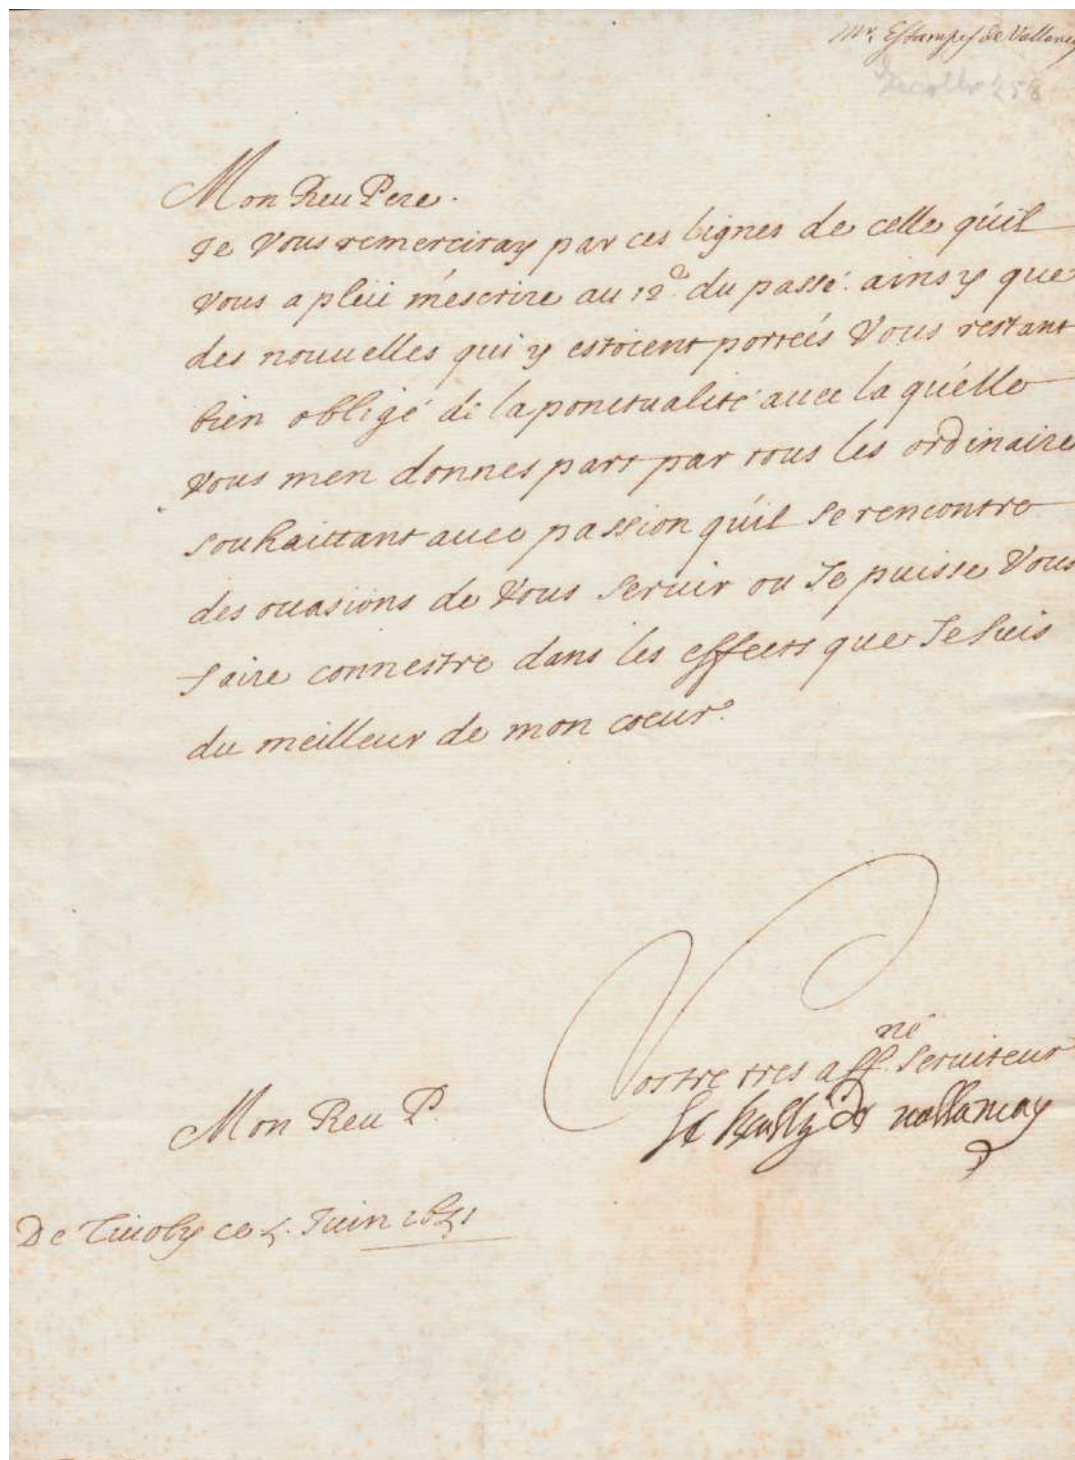 Mr. Estampes de Vallancay
Mon Reu Pere.
Je Vous remerciray par ces lignes de celle qu'il
Vous a pleü m'escrire au 12e. du passé. ainsy que
des nouuelles qui y estoient portées Vous restant
bien obligé de la ponctualité auec la quelle
Vous men donnes part par tous les ordinaires
souhaittant auec passion qu'il se rencontre
des ocasions de Vous seruir ou Je puisse Vous
faire connestre dans les effects que Je suis
du meilleur de mon coeur.
Vostre tres affné. seruiteur
de vallancay
Mon Reu P.
De Tiuoly ce 5. Juin 1651